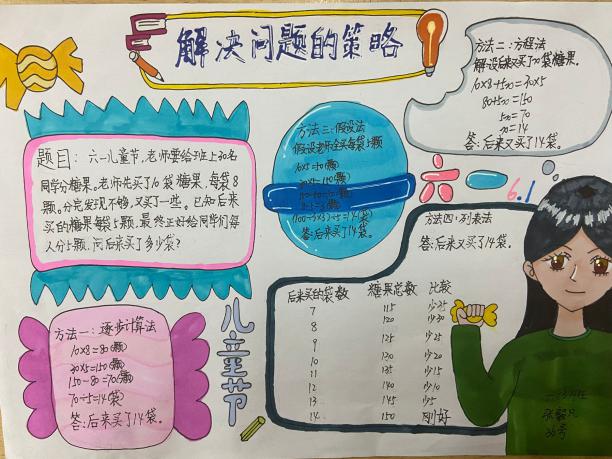 解决问题的策略
题目：六一儿童节，老师要给班上30名
同学分糖果。老师先买了10袋糖果，每袋8
颗。分完发现不够，又买了一些。已知后来
买的糖果每袋5颗，最终正好给同学们每
人分5颗，问后来买了多少袋？
方法一：逐步计算法
10×8=80(颗)
30×5=150(颗)
150-80=70(颗)
70÷5=14(袋)
答：后来买了14袋。
方法三：假设法
假设老师全买每袋5颗
答：后来买了14袋。
方法二：方程法
10×8+5x=30×5
80+5x=150
5x=70
x=14
答：后来又买了14袋。
六一
6.1
儿童节
方法四：列表法
答：后来又买了14袋。
后来买的袋数 糖果总数 比较
7 115 少35
8 120 少30
9 125 少25
10 130 少20
11 135 少15
12 140 少10
13 145 少5
14 150 刚好